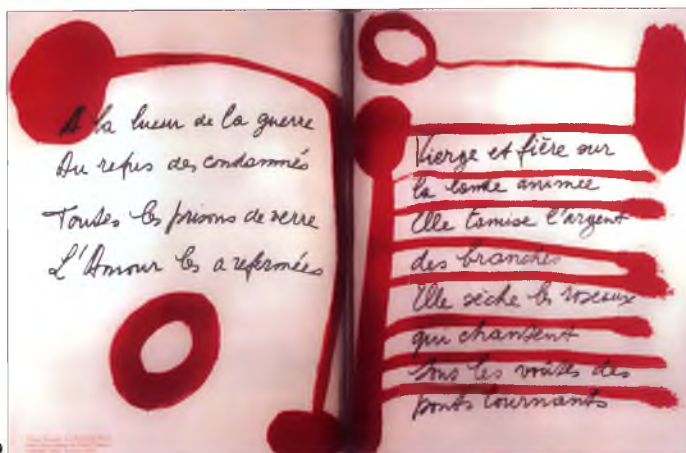 A la lueur de la guerre
Au refus des condamnés
Toutes les prisons de verre
L'Amour les a refermées
Vierge et fière sur
la tombe animée
Elle tamise l'argent
des branches
Elle sèche les roseaux
qui chansent
sous les voûtes des
ponts tournants